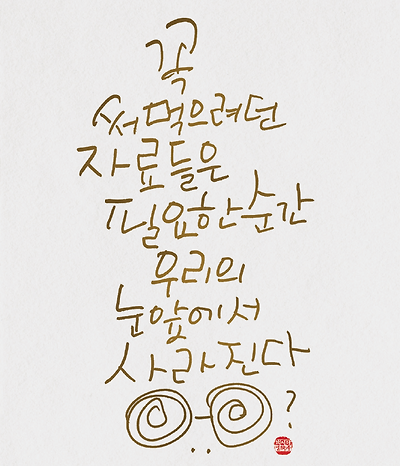 꼭
써먹으려던
자료들은
필요한순간
우리의
눈앞에서
사라진다
?